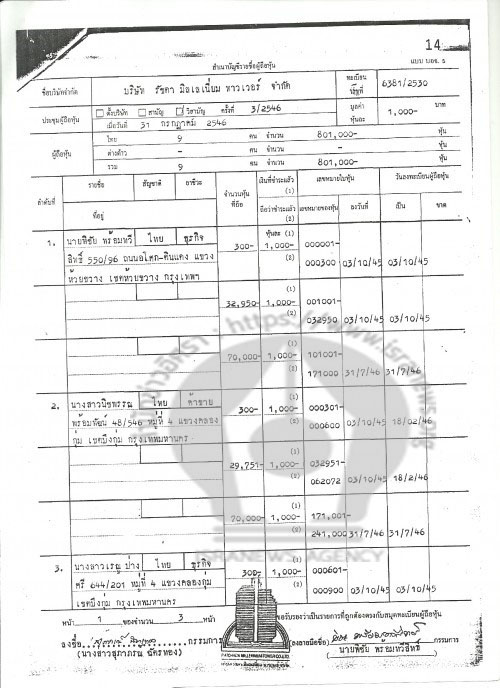 14
สำเนาบัญชีรายชื่อผู้ถือหุ้น
แบบ บอจ. 5
ชื่อบริษัทจำกัด บริษัท รัชดา มิลเลเนี่ยม ทาวเวอร์ จำกัด ทะเบียนเลขที่ 6381/2530
ประชุมผู้ถือหุ้น ตั้งบริษัท สามัญ วิสามัญ ครั้งที่ 3/2546 มูลค่าหุ้นละ 1,000- บาท
เมื่อวันที่ 31 กรกฎาคม 2546
ผู้ถือหุ้น ไทย 9 คน จำนวน 801,000- หุ้น
ต่างด้าว - คน จำนวน - หุ้น
รวม 9 คน จำนวน 801,000- หุ้น
ลำดับที่ รายชื่อ สัญชาติ อาชีพ จำนวนหุ้นที่ถือ เงินที่ชำระแล้ว (1) เลขหมายใบหุ้น วันลงทะเบียนผู้ถือหุ้น
ที่อยู่ ถือว่าชำระแล้ว (2) เลขหมายของหุ้น ลงวันที่ เป็น ขาด
1. นายพิชัย พร้อมทวี ไทย ธุรกิจ 300- หุ้นละ (1) 1,000- 000001-
สิทธิ์ 550/96 ถนนอโศก-ดินแดง แขวง (2) 000300 03/10/45 03/10/45
ห้วยขวาง เขตห้วยขวาง กรุงเทพฯ
32,950- (1) 1,000- 001001-
(2) 032950 03/10/45 03/10/45
70,000- (1) 1,000- 101001-
(2) 171000 31/7/46 31/7/46
2. นางสาวนิชพรรณ ไทย ค้าขาย 300- (1) 1,000- 000301-
พร้อมพัฒน์ 48/546 หมู่ที่ 4 แขวงคลอง (2) 000600 03/10/45 18/02/46
กุ่ม เขตบึงกุ่ม กรุงเทพมหานคร
29,751- (1) 1,000- 032951-
(2) 062072 03/10/45 18/2/46
70,000- (1) 1,000- 171,001-
(2) 241,000 31/7/46 31/7/46
3. นางสาวเรณู ปาง ไทย ธุรกิจ 300- (1) 1,000- 000601-
ตรี 644/201 หมู่ที่ 4 แขวงคลองกุ่ม (2) 000900 03/10/45 03/10/45
เขตบึงกุ่ม กรุงเทพมหานคร
หน้า 1 ของจำนวน 3 หน้า ขอรับรองว่าเป็นรายการที่ถูกต้องตรงกับสมุดทะเบียนผู้ถือหุ้น
ลงชื่อ กรรมการ (ลงลายมือชื่อ) กรรมการ
(นางสาวสุภาภรณ์ ฉัตรทอง) นายพิชัย พร้อมทวีสิทธิ์
สำนักข่าวอิศรา : https://www.isranews.org
ISRANEWS AGENCY